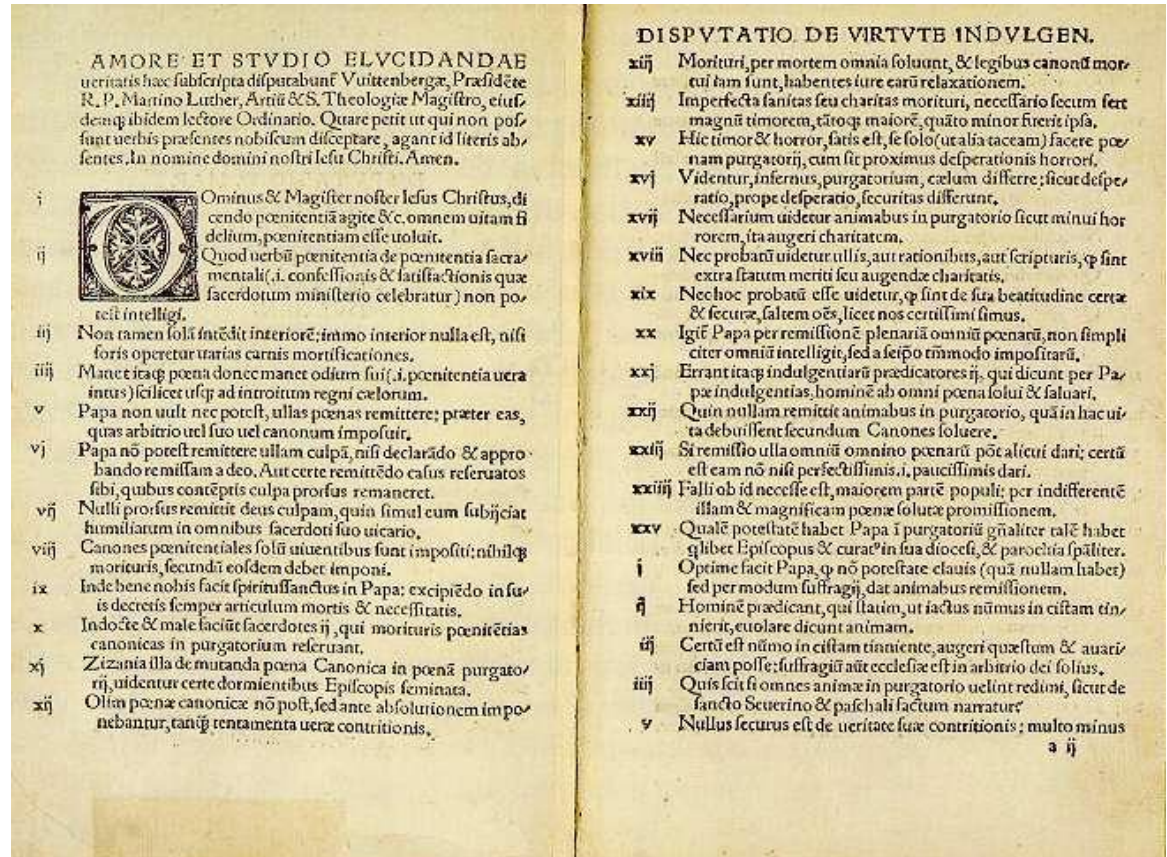 AMORE ET STVDIO ELVCIDANDAE
ueritatis hæc subscripta disputabunt̄ Vuittenbergæ, Præsidēte
R. P. Martino Luther, Artiū & S. Theologiæ Magistro, eius/
demq̄ ibidem lectore Ordinario. Quare petit ut qui non pos/
sunt uerbis præsentes nobiscum disceptare, agant id literis ab/
sentes. In nomine domini nostri Iesu Christi. Amen.
i Ominus & Magister noster Iesus Christus, di
cendo pœnitentiā agite &c. omnem uitam fi
delium, pœnitentiam esse uoluit.
ij Quod uerbū pœnitentia de pœnitentia sacra/
mentali(.i. confessionis & satisfactionis quæ
sacerdotum ministerio celebratur) non po/
test intelligi.
iij Non tamen solā intēdit interiorē: immo interior nulla est, nisi
foris operetur uarias carnis mortificationes.
iiij Manet itaq̄ pœna donec manet odium sui(.i. pœnitentia uera
intus) scilicet usq̄ ad introitum regni cælorum.
v Papa non uult nec potest, ullas pœnas remittere: præter eas,
quas arbitrio uel suo uel canonum imposuit.
vj Papa nō potest remittere ullam culpā, nisi declarādo & appro/
bando remissam a deo. Aut certe remittēdo casus reseruatos
sibi, quibus contēptis culpa prorsus remaneret.
vij Nulli prorsus remittit deus culpam, quin simul eum subijciat
humiliatum in omnibus sacerdoti suo uicario.
viij Canones pœnitentiales solū uiuentibus sunt impositi: nihilq̄
morituris, secundū eosdem debet imponi.
ix Inde bene nobis facit spiritussanctus in Papa: excipiēdo in su/
is decretis semper articulum mortis & necessitatis.
x Indocte & male faciūt sacerdotes ij, qui morituris pœnitētias
canonicas in purgatorium reseruant.
xj Zizania illa de mutanda pœna Canonica in pœnā purgato/
rij, uidentur certe dormientibus Episcopis seminata.
xij Olim pœnæ canonicæ nō post, sed ante absolutionem impo/
nebantur, tanq̄ tentamenta ueræ contritionis.
DISPVTATIO DE VIRTVTE INDVLGEN.
xiij Morituri, per mortem omnia soluunt, & legibus canonū mor/
tui iam sunt, habentes iure earū relaxationem.
xiiij Imperfecta sanitas seu charitas morituri, necessario secum fert
magnū timorem, tātoq̄ maiorē, quāto minor fuerit ipsa.
xv Hic timor & horror, satis est, se solo (ut alia taceam) facere pœ/
nam purgatorij, cum sit proximus desperationis horrori.
xvj Videntur, infernus, purgatorium, cælum differre: sicut despe/
ratio, prope desperatio, securitas differunt.
xvij Necessarium uidetur animabus in purgatorio sicut minui hor
rorem, ita augeri charitatem.
xviij Nec probatū uidetur ullis, aut rationibus, aut scripturis, q̄ sint
extra statum meriti seu augendæ charitatis.
xix Nec hoc probatū esse uidetur, q̄ sint de sua beatitudine certæ
& securæ, saltem oēs, licet nos certissimi simus.
xx Igit̄ Papa per remissionē plenariā omniū pœnarū, non simpli
citer omniū intelligit, sed a seipō tm̄modo impositarū.
xxj Errant itaq̄ indulgentiarū prædicatores ij, qui dicunt per Pa/
pæ indulgentias, hominē ab omni pœna solui & saluari.
xxij Quin nullam remittit animabus in purgatorio, quā in hac ui/
ta debuissent secundum Canones soluere.
xxiij Si remissio ulla omniū omnino pœnarū pōt alicui dari: certū
est eam nō nisi perfectissimis .i. paucissimis dari.
xxiiij Falli ob id necesse est, maiorem partē populi: per indifferentē
illam & magnificam pœnæ solutæ promissionem.
xxv Qualē potestatē habet Papa ī purgatoriū gn̄aliter talē habet
q̄libet Episcopus & curat⁹ in sua diocesi, & parochia spāliter.
i Optime facit Papa, q̄ nō potestate clauis (quā nullam habet)
sed per modum suffragij, dat animabus remissionem.
ij Hominē prædicant, qui statim, ut iactus nūmus in cistam tin/
nierit, euolare dicunt animam.
iij Certū est nūmo in cistam tinniente, augeri quæstum & auari/
ciam posse: suffragiū aūt ecclesiæ est in arbitrio dei solius.
iiij Quis scit si omnes animæ in purgatorio uelint redimi, sicut de
sancto Seuerino & paschali factum narratur?
v Nullus securus est de ueritate suæ contritionis: multo minus
a ij